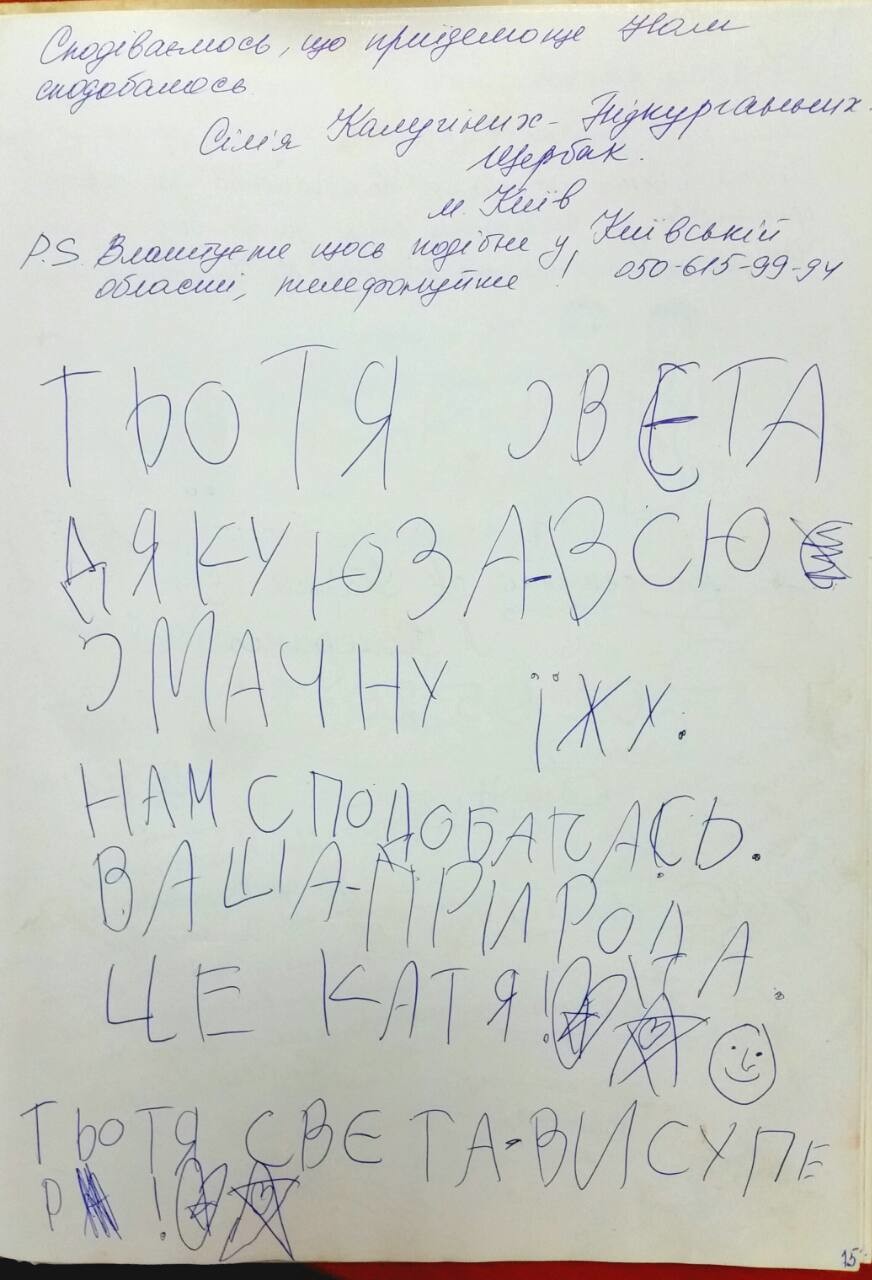 Сподіваємось, що приїдемо ще Нам
сподобалось.
Сім'я Калугіних - Підкурганних -
Щербак.
м. Київ
P.S. Влаштуєте щось подібне у Київській
області, телефонуйте! 050-615-99-94
ТЬОТЯ СВЄТА
ДЯКУЮ ЗА-ВСЮ
СМАЧНУ ЇЖУ.
НАМ СПОДОБАЛАСЬ.
ВАША-ПРИРОДА.
ЦЕ КАТЯ!
ТЬОТЯ СВЄТА-ВИ СУПЕ
Р !
15